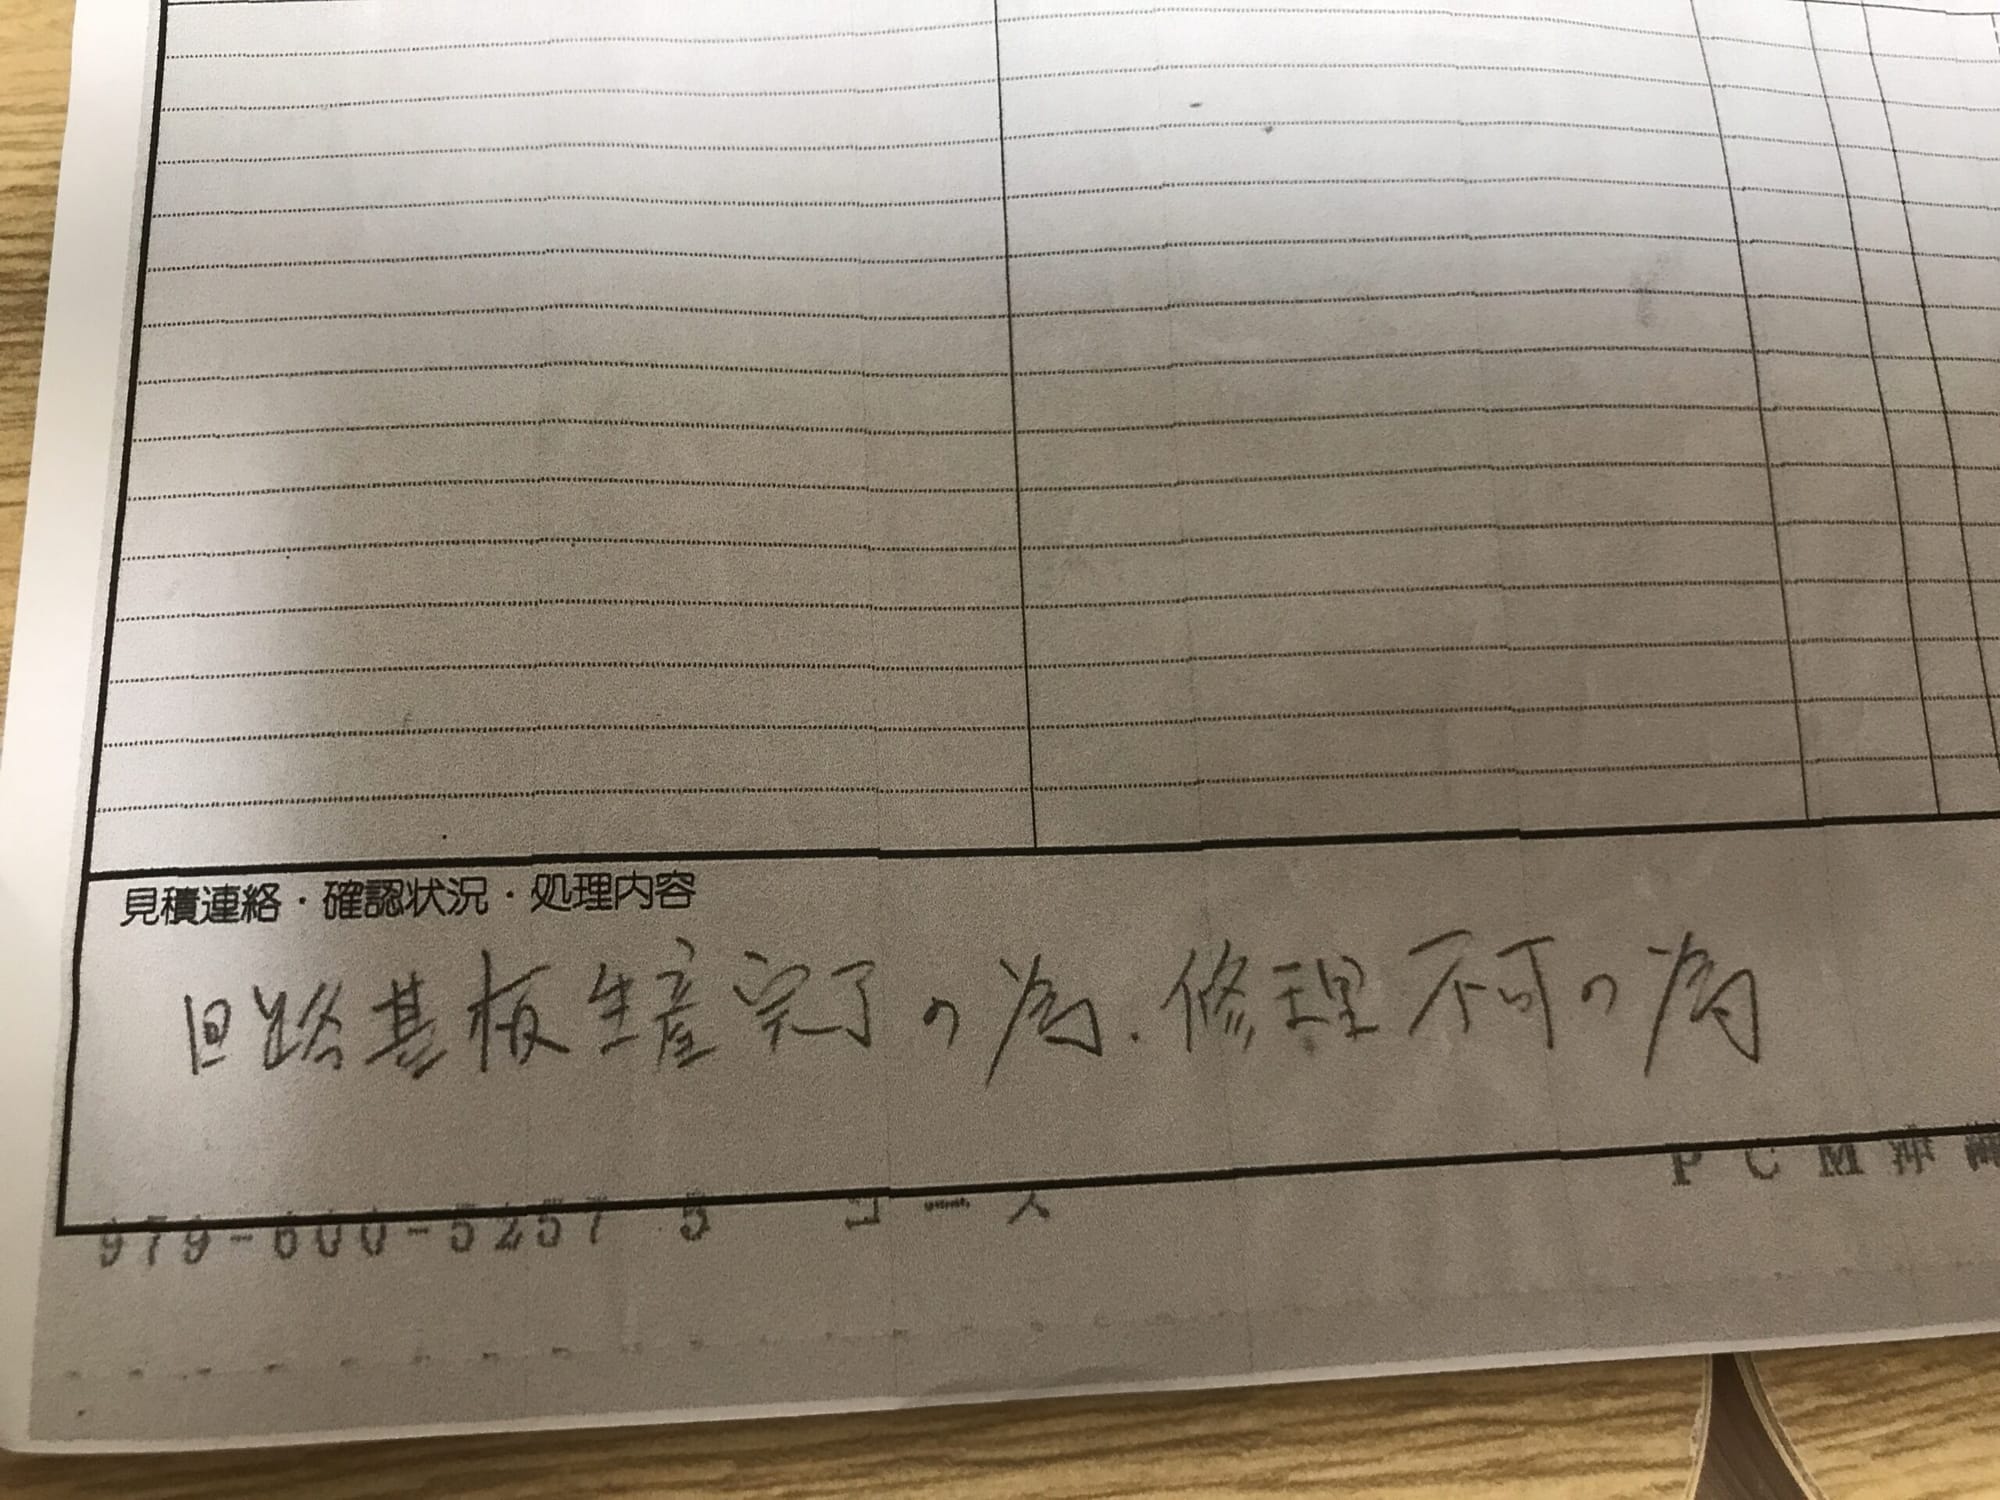 見積連絡・確認状況・処理内容
回路基板生産完了の為.修理不可の為
979-600-5257 5 コース
PCM